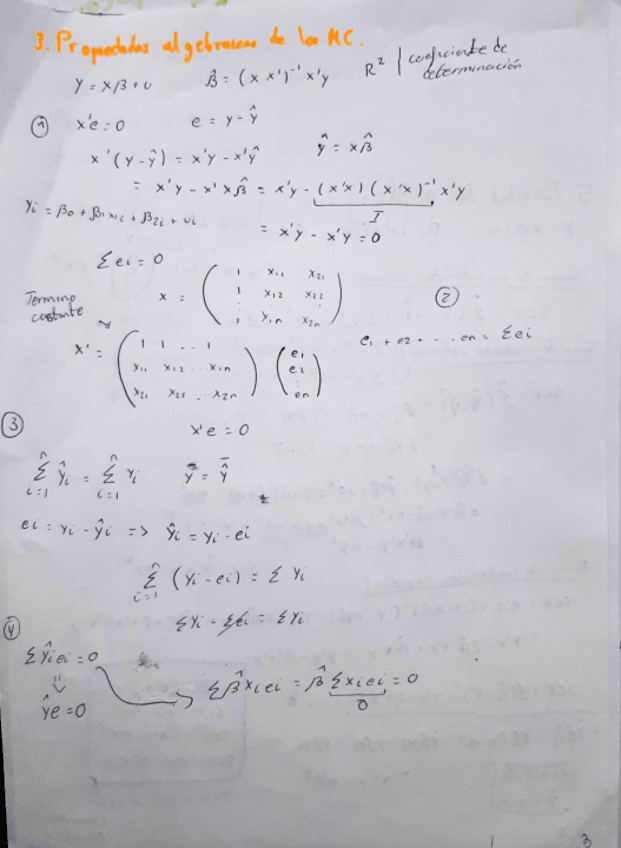 3. Propiedades algebraicas de los MC.
Y = Xβ + U β̂ = (x x')⁻¹ x'y R² | coeficiente de determinación
① x'e = 0 e = y - ŷ
x'(y - ŷ) = x'y - x'ŷ ŷ = xβ̂
= x'y - x'xβ̂ = x'y - (x'x)(x'x)⁻¹ x'y
I
Yi = β0 + β1 x1i + β2i + ui
= x'y - x'y = 0
Σ ei = 0
Termino constante
x = ( 1 x11 x21
1 x12 x22
⋮ x1n x2n )
②
e1 + e2 + ... en = Σei
x' = ( 1 1 .. 1
x11 x12 ... x1n
x21 x22 .. x2n ) ( e1
e2
⋮
en )
③ x'e = 0
Σⁿi=1 ŷi = Σⁿi=1 yi ȳ = ŷ̄
ei = yi - ŷi => ŷi = yi - ei
Σⁿi=1 (yi - ei) = Σ yi
Σyi - Σei = Σyi
④
Σŷiei = 0
⇓
ŷe = 0
Σβ̂xiei = β̂ Σxiei = 0
0
3